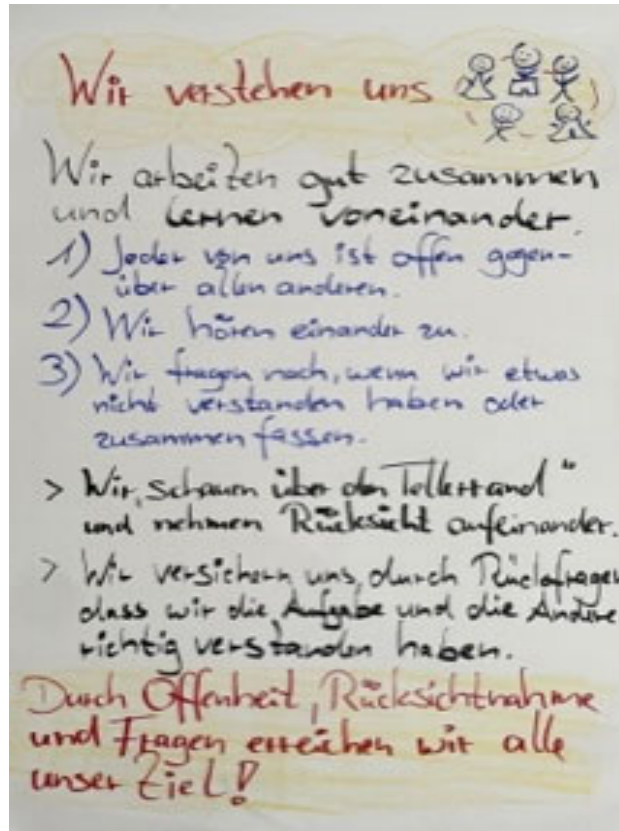 Wir verstehen uns
Wir arbeiten gut zusammen
und lernen voneinander.
1) Jeder von uns ist offen gegen-
über allen anderen.
2) Wir hören einander zu.
3) Wir fragen nach, wenn wir etwas
nicht verstanden haben oder
zusammenfassen.
> Wir „schauen über den Tellerrand“
und nehmen Rücksicht aufeinander.
> Wir versichern uns durch Rückfragen
dass wir die Aufgabe und die Andere
richtig verstanden haben.
Durch Offenheit, Rücksichtnahme
und Fragen erreichen wir alle
unser Ziel!